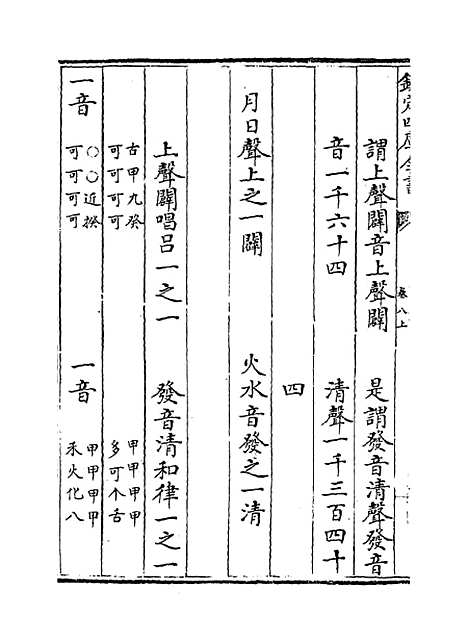 欽定四庫全書
卷八上
謂上聲闢音上聲闢
音一千六十四
月日聲上之一闢
上聲闢唱呂一之一
古甲九癸
可可可可
一音
○○近揆
可可可可
是謂發音清聲發音
清聲一千三百四十
四
火水音發之一清
發音清和律一之一
甲甲甲甲
多可个舌
一音
甲甲甲甲
禾火化八